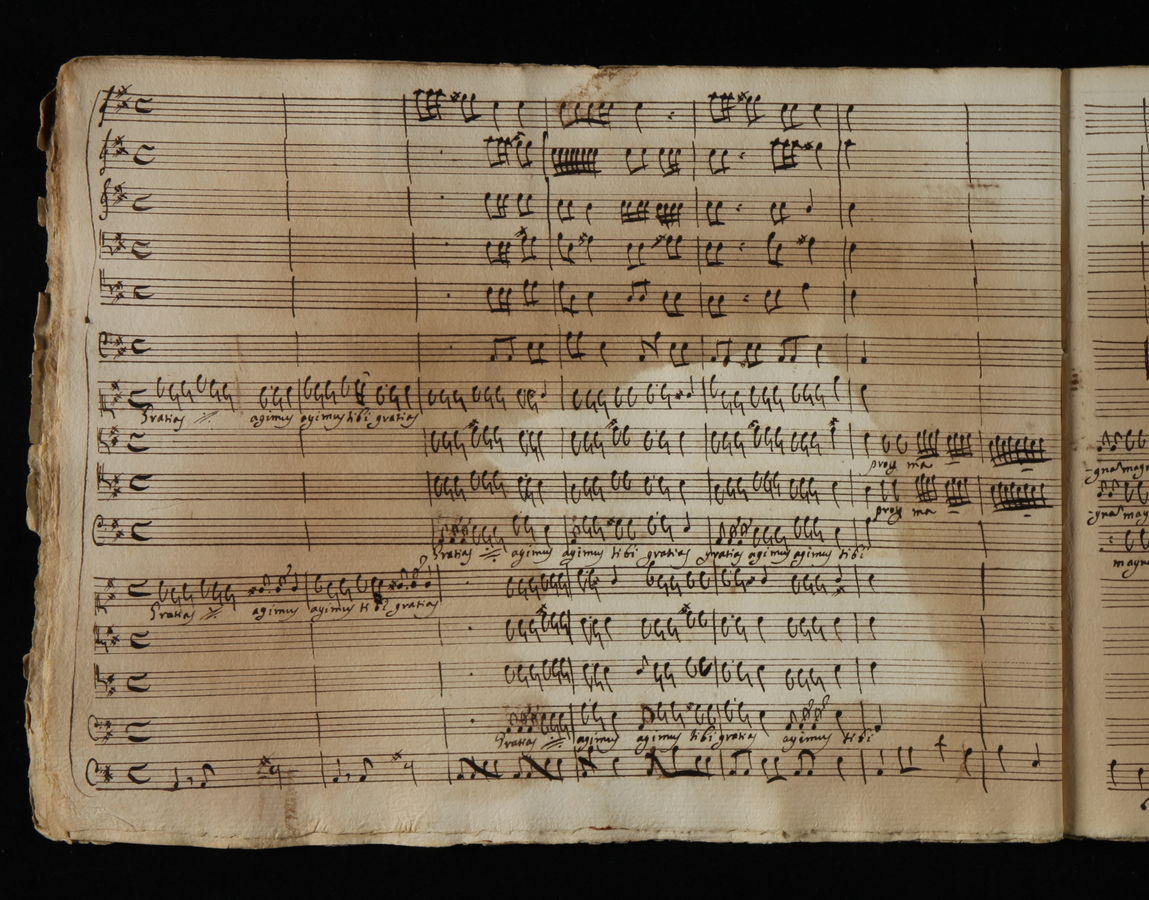 Gratias agimus agimus tibi gratias
prop ma
prop ma
Gratias agimus agimus tibi gratias gratias agimus agimus tibi
Gratias agimus agimus tibi gratias
Gratias agimus agimus tibi gratias agimus tibi